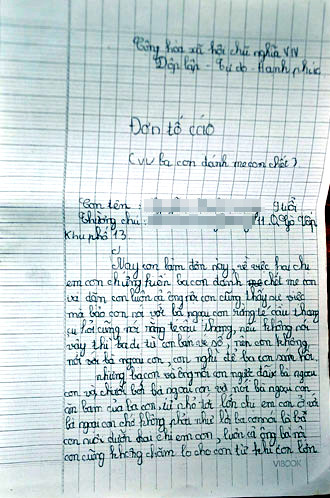 Cộng hòa xã hội chủ nghĩa VN
Độc lập - Tự do - Hạnh phúc
Đơn tố cáo
(V/v ba con đánh mẹ con chết)
Con tên : 9 tuổi
Thường chú : 11. Q Gò Vấp
Khu phố 13.
Nay con làm đơn này về việc hai chị
em con chứng kiến ba con đánh mẹ chết mẹ con
và dặn con luôn cả ông nội con cũng thấy sự việc
mà bảo con nói với bà ngoại con rằng té cầu thang
sự hỏi cũng nói rằng té cầu thang, nếu không nói
vậy thì ba đi tù con bán vé số, nên con không
nói với bà ngoại con, con nghĩ để ba con sám hối.
nhưng ba con và ông nội con người đuổi bà ngoại
con và chưởi bới bà ngoại con và nói bà ngoại con
ăn bám của ba con, từ nhỏ tới lớn chị em con ở với
bà ngoại con chớ không phải như lời ba con nói là ba
con nuôi dưỡng hai chị em con, luôn cả ông bà nội
con cũng không chăm lo cho con từ khi con lớn
VIBOOK